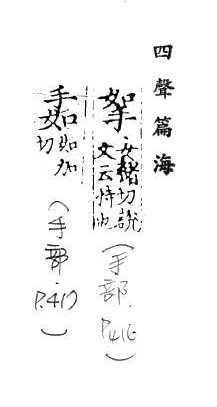 四聲篇海
挐 女豬切說文云持也 (手部.P.416)
如加切 (手部.P.417)